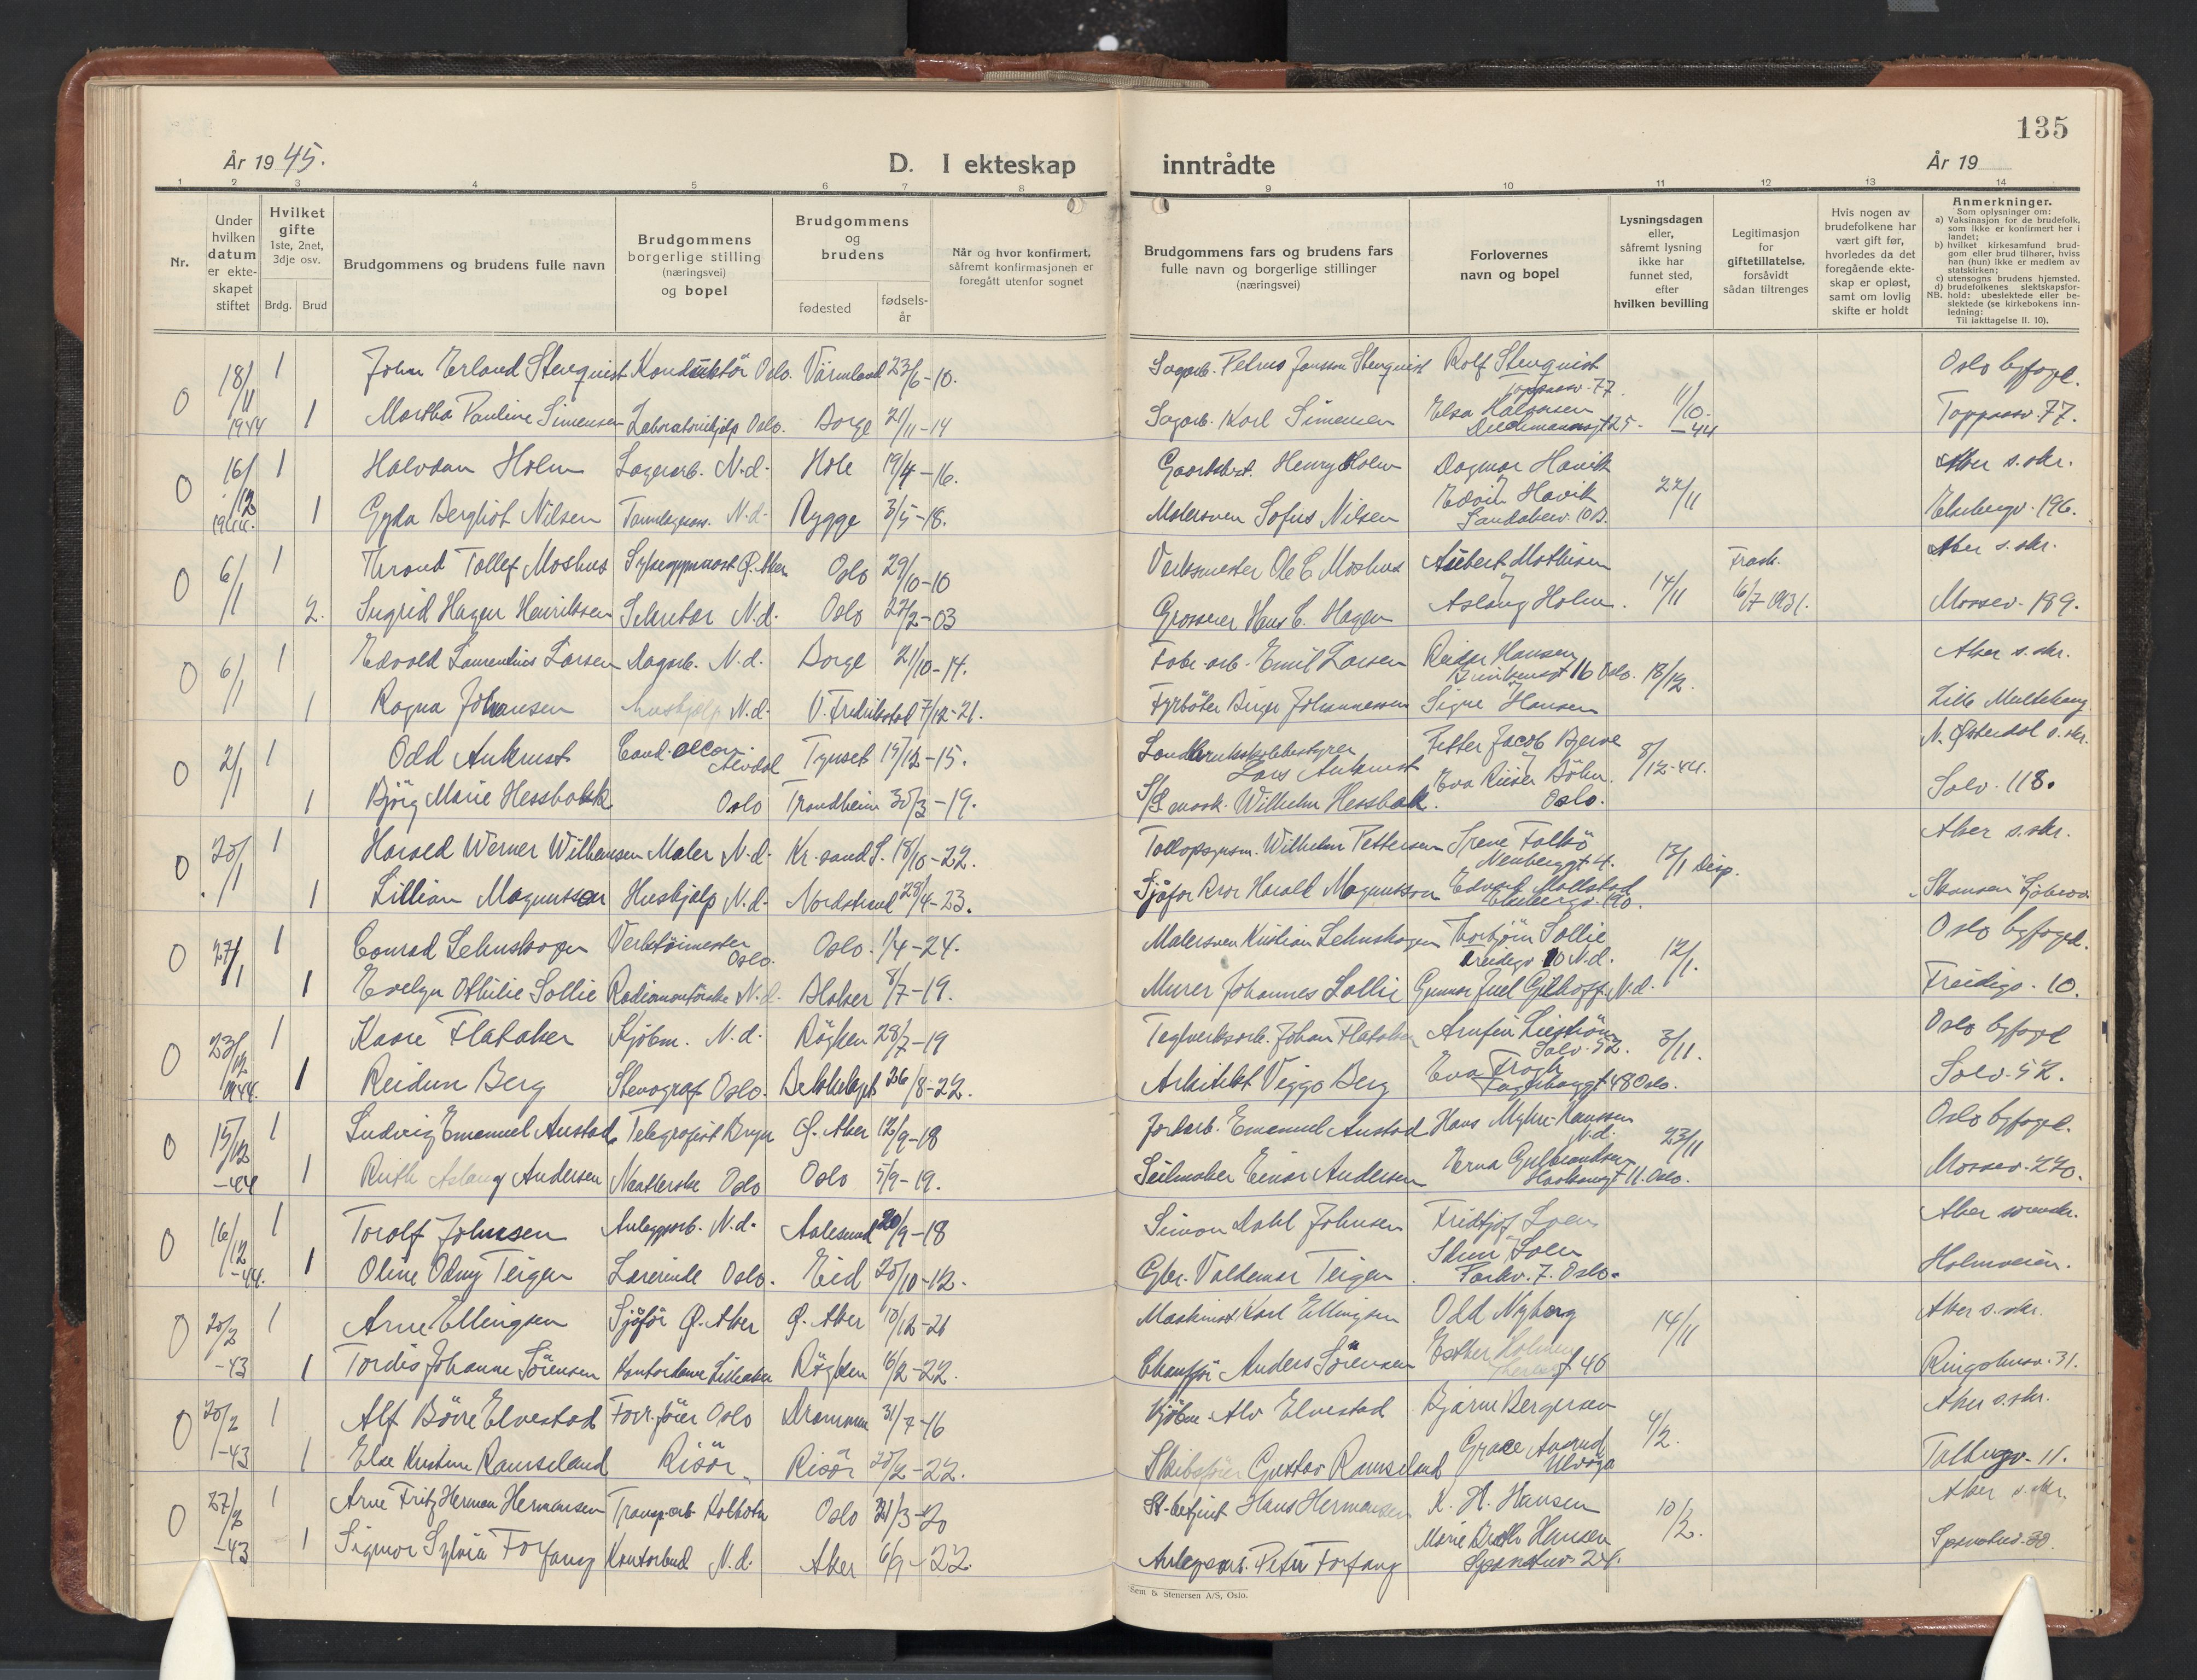 135
År 1945.
D. I ekteskap inntrådte
År 19
1 2 3 4 5 6 7 8 9 10 11 12 13 14
Nr.
Under hvilken datum er ekteskapet stiftet
Hvilket gifte 1ste, 2net, 3dje osv.
Brdg. Brud
Brudgommens og brudens fulle navn
Brudgommens borgerlige stilling (næringsvei) og bopel
Brudgommens og brudens
fødested
fødselsår
Når og hvor konfirmert, såfremt konfirmasjonen er foregått utenfor sognet
Brudgommens fars og brudens fars fulle navn og borgerlige stillinger (næringsvei)
Forlovernes navn og bopel
Lysningsdagen eller, såfremt lysning ikke har funnet sted, efter hvilken bevilling
Legitimasjon for giftetillatelse, forsåvidt sådan tiltrenges
Hvis nogen av brudefolkene har vært gift før, hvorledes da det foregående ekteskap er opløst, samt om lovlig skifte er holdt
Anmerkninger.
Som oplysninger om:
a) Vaksinasjon for de brudefolk, som ikke er konfirmert her i landet;
b) hvilket kirkesamfund brudgom eller brud tilhører, hviss han (hun) ikke er medlem av statskirken;
c) utensogns brudens hjemsted.
d) brudefolkenes slektskapsforhold: ubeslektede eller beslektede (se kirkebokens innledning:
NB.
Til iakttagelse II. 10).
0 18/11 1 John Erland Stenquist Konduktör Oslo. Värmland 23/6-10. Sagarb. Petrus Jansson Stenquist Rolf Stenquist Oslo byfoged.
1944 1 Martha Pauline Simensen Laboratoriehjelp Oslo. Borge 21/11-14 Sagarb. Karl Simensen Elsa 11/10-44 Toppåsv. 77.
0 16/12 1 Halvdan Holm Lagerarb. N.d. Hole 19/4-16. Henry Holm Dagmar Havik 22/11 Aker s.skr.
1944. 1 Gyda Bergliot Nilsen N.d. Rygge 3/5-18. Malersven Sofus Nilsen Edvin Havik Ekebergv. 196.
0 6/1 1 Thrond Tollef Moshus Ø. Aker Oslo 29/10-10 Verksmester Ole C. Moshus Mathisen 14/11 Frask. Aker s.skr.
2. Ingrid Hagen Henriksen Sekretær N.d. Oslo 27/2-03 Grosserer Hans C. Hagen Aslaug Holm. 16/7-1931. Mossev. 189.
0 6/1 1 Edvald Laurentius Larsen Lagarb. N.d. Borge 21/10-14. Fabr.arb. Emil Larsen Reidar Hansen 16 Oslo. 18/12. Aker s.skr.
1 Ragna Johansen Hushjelp N.d. V. Fredrikstad 7/12-21. Fyrböter Birger Johannessen Signe Hansen Lille
0 2/1 1 Odd Aukrust Cand. oecon. Alvdal Tynset 15/12-15. Landbruksskolebestyrer Lars Aukrust Petter Jacob Bjerve 8/12-44. N. Østerdal s.skr.
1 Bjørg Marie Hessbakk Oslo Trondheim 30/3-19. Wilhelm Hessbakk. Eva Böhn. Oslo. Solv. 118.
0 20/1 1 Harald Werner Wilhelmsen Maler N.d. Kr.sand S. 18/10-22. Wilhelm Pettersen Irene 13/1 Disp. Aker s.skr.
1 Lillian Magnusson Hushjelp N.d. Nordstrand 29/4-23. Sjåför Harald Magnusson Ekebergv. 190.
0 27/1 1 Conrad Lehnskogen Verktöimester Oslo. Oslo. 1/4-24. Malersven Kristian Lehnskogen Thorbjörn Sollie 10 N.d. 12/1. Oslo byfoged.
1 Evelyn Othilie Sollie N.d. 8/7-19. Murer Johannes Sollie Gunnar Juel N.d. Freidigv. 10.
0 23/12 1 Kaare Flataker Kjöbm. N.d. Röyken 28/7-19 Teglverksarb. Johan Flataker Arnfin Solv. 52. 3/11. Oslo byfoged
1944. 1 Reidun Berg Stenograf Oslo. Bekkelaget 26/8-22. Arkitekt Viggo Berg Eva 48 Oslo. Solv. 52.
0 15/12 1 Ludvig Emanuel Austad Telegrafist Bryn Ø. Aker 12/9-18 Emanuel Austad Hans N.d. 23/11 Oslo byfoged.
-44 1 Ruth Aslaug Andersen Oslo Oslo 5/9-19. Seilmaker Einar Andersen Erna Gulbrandsen 11. Oslo. Mossev. 220.
0 16/12 1 Torolf Johnsen Anleggsarb. N.d. Aalesund 20/9-18 Simon Dahl Johnsen Fridtjof Loen Aker
-44. 1 Oline Odny Teigen Lærerinde Oslo. Eid 20/10-12. Gbr. Valdemar Teigen Loen Parkv. 7. Oslo. Holmveien.
0 20/2 1 Arne Ellingsen Sjåför Ø. Aker Ø. Aker 13/12-21 Maskinist Karl Ellingsen Odd Nyborg 14/11 Aker s.skr.
-43 1 Tordis Johanne Sörensen Kontordame Lilleaker Röyken 16/2-22. Anders Sörensen Esther 46 Ringshusv. 31.
0 20/2 1 Alf Börre Elvestad Oslo Drammen 31/7-16 Kjöbm. Alv Elvestad Bjarne Bergersen 4/2. Aker s.skr.
-43 1 Else Kristine Ramseland Risör Risör 20/2-22. Skibsfører Gustav Ramseland Grace Ulvöya 11.
0 27/2 1 Arne Fritz Herman Hermansen Transp.arb. Kolbotn Oslo 21/3-20 St.betjent Hans Hermansen K. H. Hansen 10/2. Aker s.skr.
-43 1 Sigmor Sylvia Forfang Kontorbud N.d. Aker 6/9-22. Anlegsarb. Peter Forfang Marie Hansen
Sem & Stenersen A/S, Oslo.